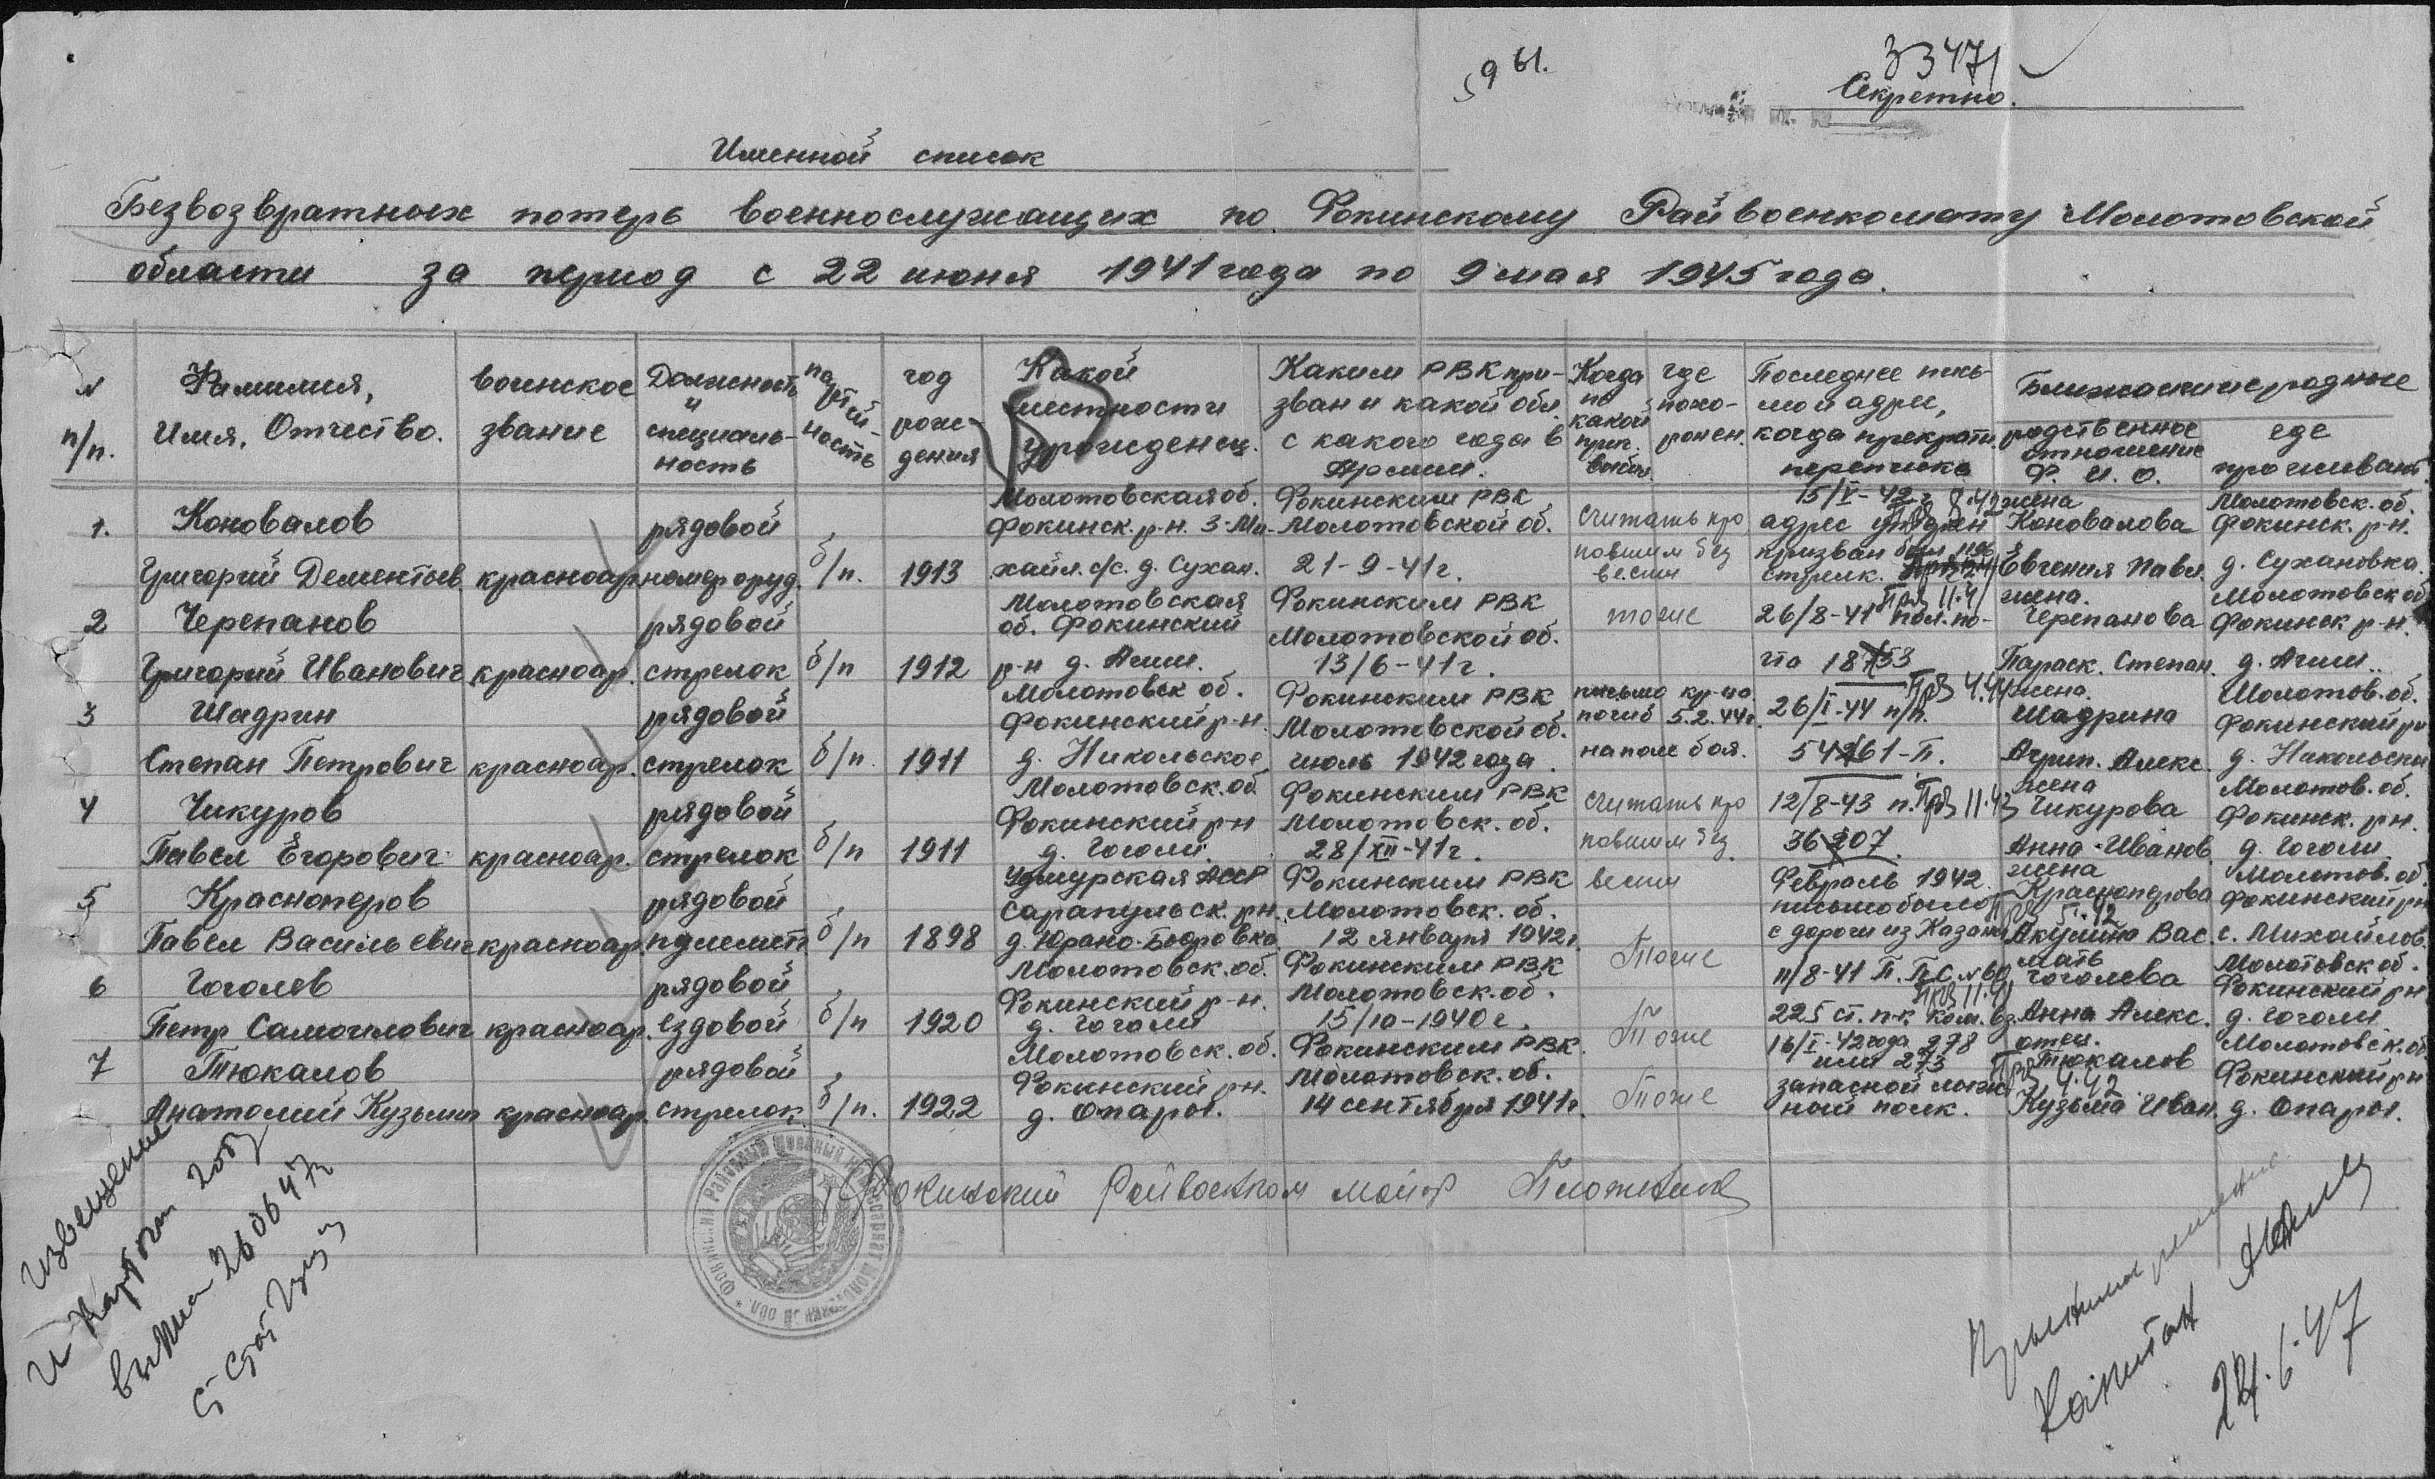 5961.
33471
Секретно.
Именной список
Безвозвратных потерь военнослужащих по Фокинскому Райвоенкомату Молотовской
области за период с 22 июня 1941 года по 9 мая 1945 года.
N п/п. Фамилия, Имя, Отчество. воинское звание Должность и специальность партейность год рождения Какой местности урожденец. Каким РВК призван и какой обл. с какого года в Армии. Когда по какой прич. выбыл где похоронен. Последнее письмо и адрес, когда прекрат. переписка Ближайшие родные
родственное отношение Ф. И. О. где проживают
1. Коновалов рядовой Молотовская об. Фокинским РВК 15/V-42 г жена Молотовск. об.
Фокинск. р-н. З-Ми- Молотовской об. считать про адрес утерян Коновалова Фокинск. р-н.
Григорий Дементьев красноар. номер оруд. б/п. 1913 хайл. с/с. д. Сухан. 21-9-41г. павшим без вести призван был стрелк. Евгения Павл. д. Сухановка.
2 Черепанов рядовой Молотовская Фокинским РВК Прв 11.41 жена. Молотовск об
об. Фокинский Молотовской об. тоже 26/8-41 пол. по- Черепанова Фокинск р-н.
Григорий Иванович красноар. стрелок б/п 1912 р-н д. Агиш. 13/6-41г. та 18753 Параск. Степан. д. Агиш..
3 Шадрин рядовой Молотовск об. Фокинским РВК письмо кр-ца Прв 4.44 жена. Молотов. об.
Фокинский р-н. Молотовской об. погиб 5.2.44г. 26/I-44 п/п. Шадрина Фокинский рн
Степан Петрович красноар. стрелок б/п. 1911 д. Никольское июль 1942 года. на поле боя. 54261-П. Агрип. Алекс. д. Никольск
4 Чикуров рядовой Молотовск. об Фокинским РВК жена Молотов. об.
Фокинский рн Молотовск. об. считать про 12/8-43 п. Прв 11.43 Чикурова Фокинск. рн.
Павел Егорович красноар. стрелок б/п 1911 д. Гоголи. 28/XII-41г. павшим без 36207. Анна Иванов. д. Гоголи
5 Красноперов рядовой Удмурская АССР Фокинским РВК вести Февраль 1942. жена Молотов. об.
Сарапульск. рн. Молотовск. об. письмо было Красноперова Фокинский рн
Павел Васильевич красноар. пулемет. б/п 1898 12 января 1942г. Тоже с дороги из Казани Акулина Вас. с. Михайлов.
6 Гоголев рядовой Молотовск. об. Фокинским РВК мать Молотовск об.
Фокинский р-н. Молотовск. об. 11/8-41 П. П.С. Гоголева Фокинский рн
Петр Самоилович красноар. ездовой б/п 1920 д. Гоголи 15/10-1940г. Тоже Прв 11.41 225 ст. п-к Анна Алекс. д. Гоголи
7 Тюкалов рядовой Молотовск. об. Фокинским РВК. 16/I-42 года 278 отец. Молотовск. об
Фокинский рн. Молотовск. об. или 273 Тюкалов Фокинский рн
Анатолий Кузьмич красноар. стрелок б/п. 1922 д. Опары. 14 сентября 1941г. Тоже запасной ный полк. Кузьма Иван. д. Опары.
Фокинский Райвоенком майор
Извещение
и
капитан
24.6.47